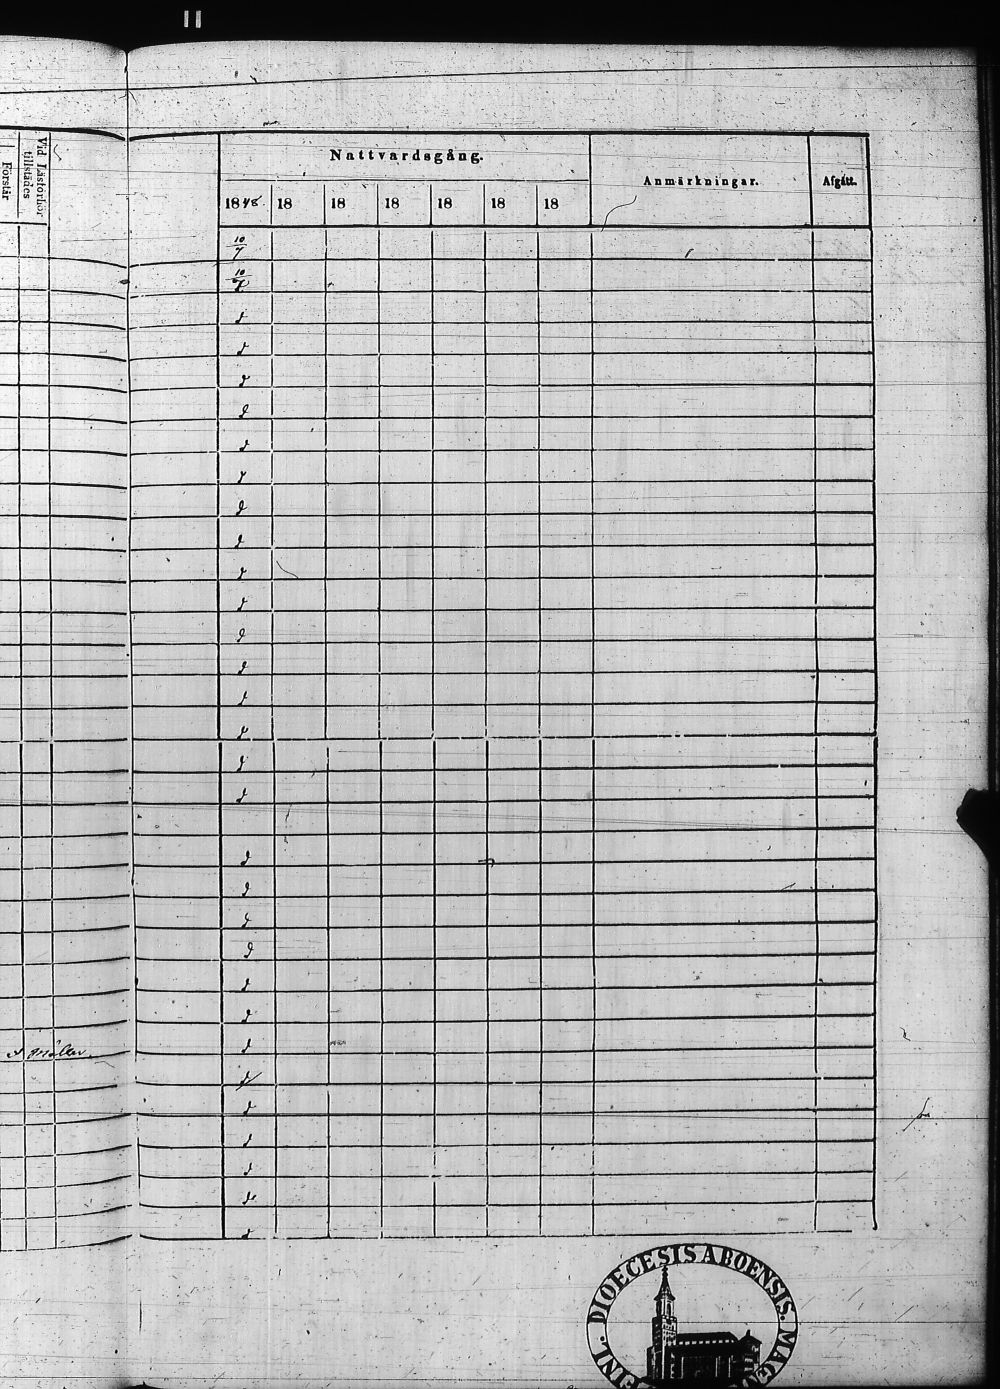 11
Vid Läsförhör
tillstädes
Förstår
Nattvardsgång.
Anmärkningar.
Afgått.
1848. 18 18 18 18 18 18
10/7
10/7
d
d
d
d
d
d
d
d
d
d
d
d
d
d
d
d
d
d
d
d
d
d
d
d
d
d
d
d
d
d
d
DIOECESIS ABOENSIS. MAG
FINL.